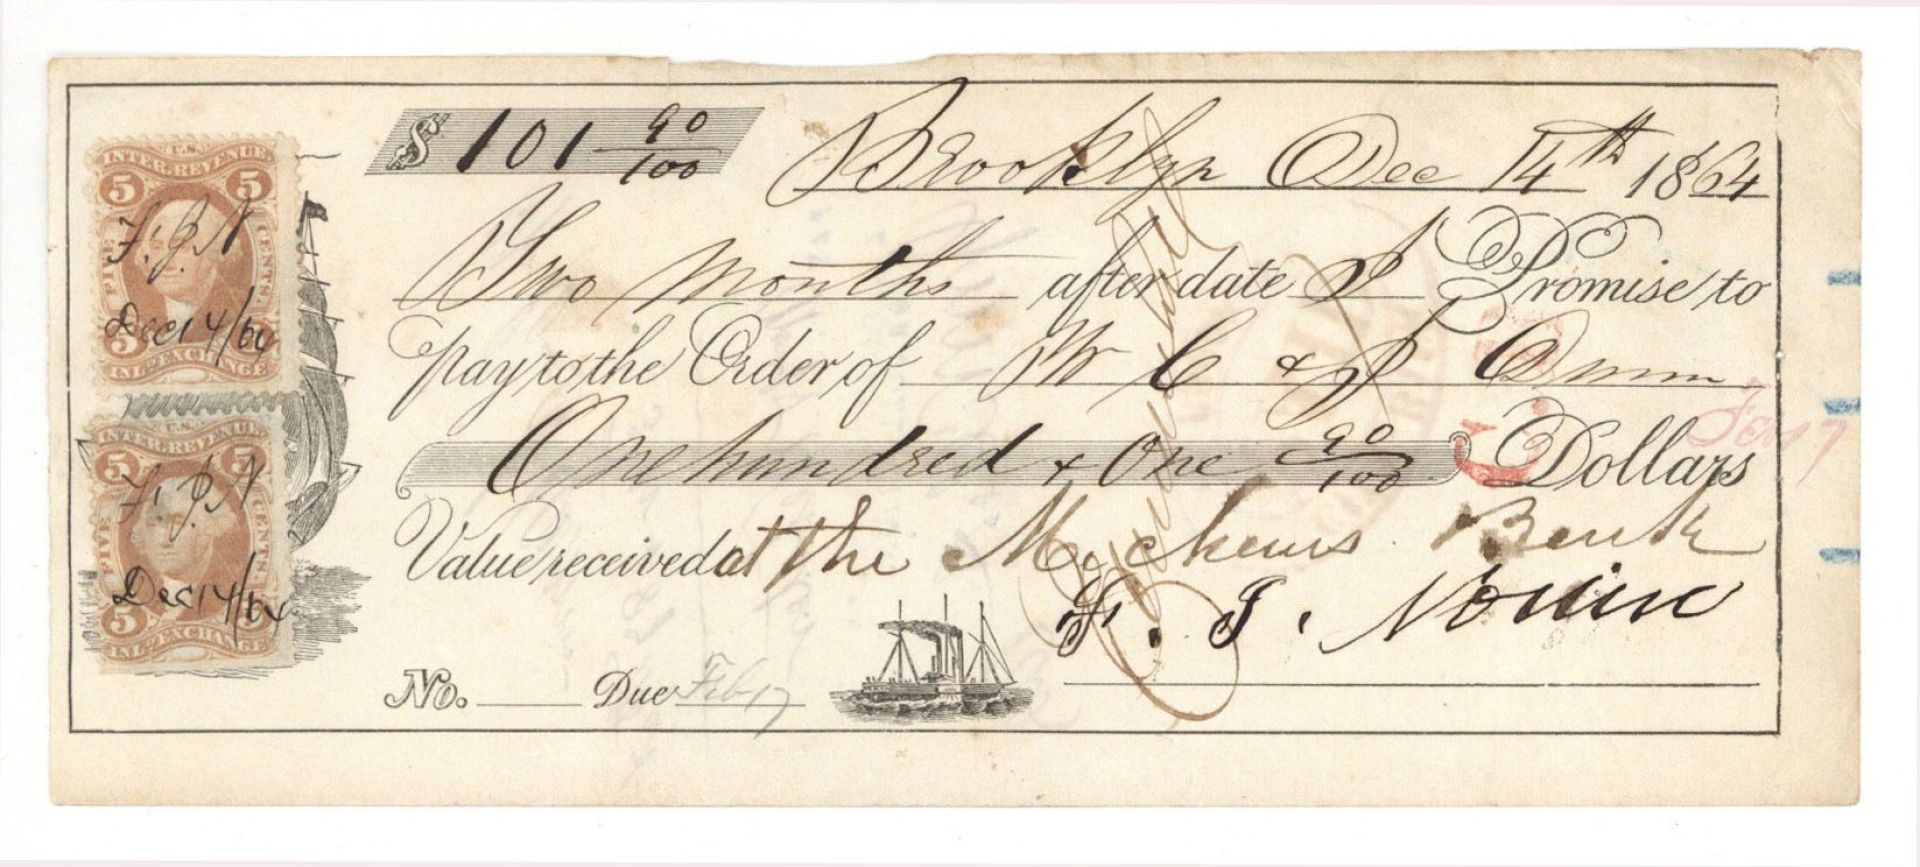 $ 101 90/100 Brooklyn Dec 14th 1864
Two months after date I Promise to
pay to the Order of W C & J Dunn
One hundred & One 90/100 Dollars
Value received at the Mechenis Bank
F. J.
No. Due Feb 17
Feb 17
U.S.
INTER. REVENUE
5 5
FIVE CENTS.
F. J. N
Dec 14/64
5 5
INL. EXCHANGE
U.S.
INTER. REVENUE
5 5
FIVE CENTS.
F. J. N
Dec 14/64
5 5
INL. EXCHANGE